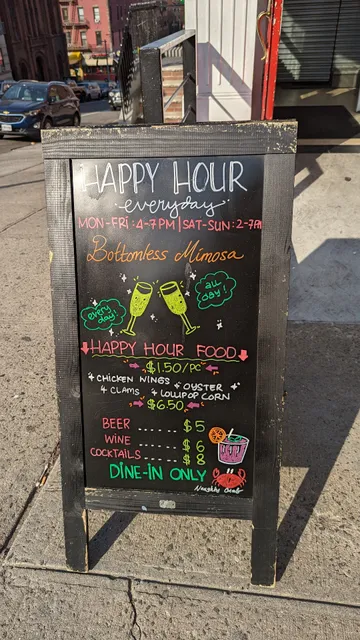 HAPPY HOUR
everyday
MON-FRI: 4-7PM | SAT-SUN: 2-7PM
Bottomless Mimosa
every day!
all day!
HAPPY HOUR FOOD
$1.50/PC
CHICKEN WINGS OYSTER
4 CLAMS LOLLIPOP CORN
$6.50
BEER ...... $5
WINE ...... $6
COCKTAILS ..... $8
DINE-IN ONLY
Naughty Crab